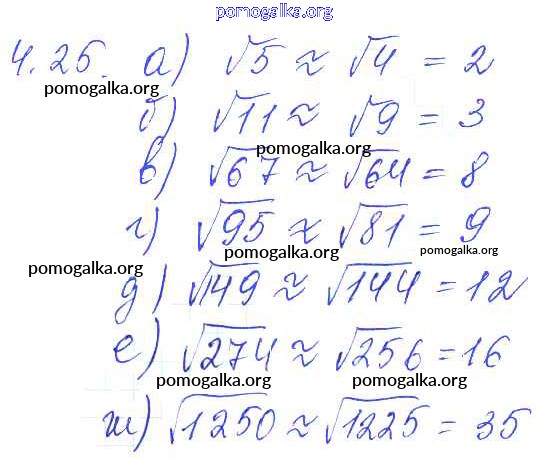 pomogalka.org
4.25. а) √5 ≈ √4 = 2
pomogalka.org
б) √11 ≈ √9 = 3
pomogalka.org
в) √67 ≈ √64 = 8
г) √95 ≈ √81 = 9
pomogalka.org pomogalka.org
pomogalka.org
д) √149 ≈ √144 = 12
е) √274 ≈ √256 = 16
pomogalka.org pomogalka.org
ж) √1250 ≈ √1225 = 35